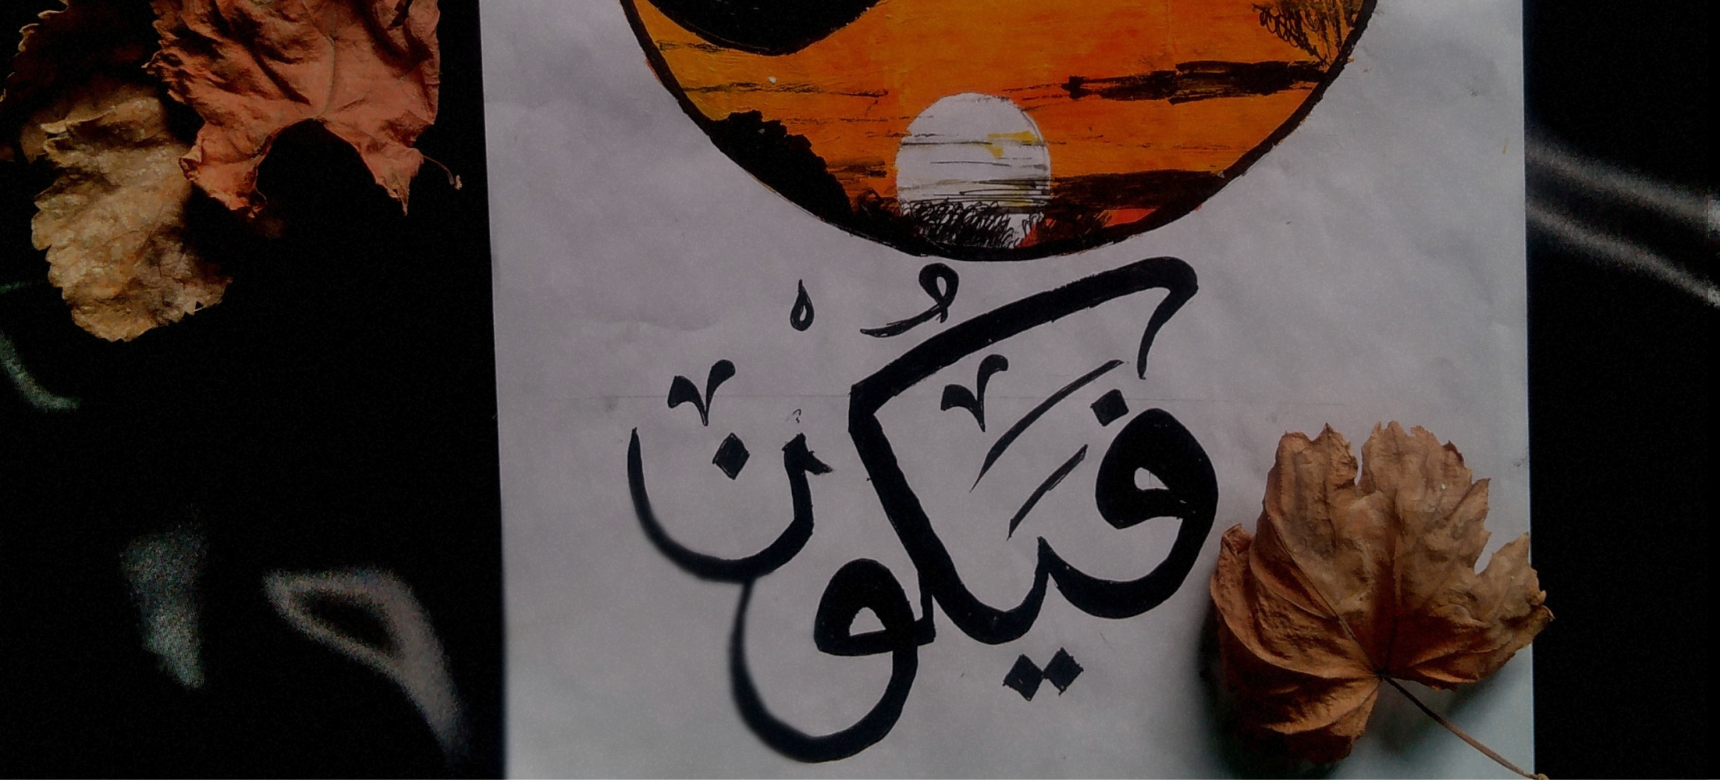 فَيَكُونْ